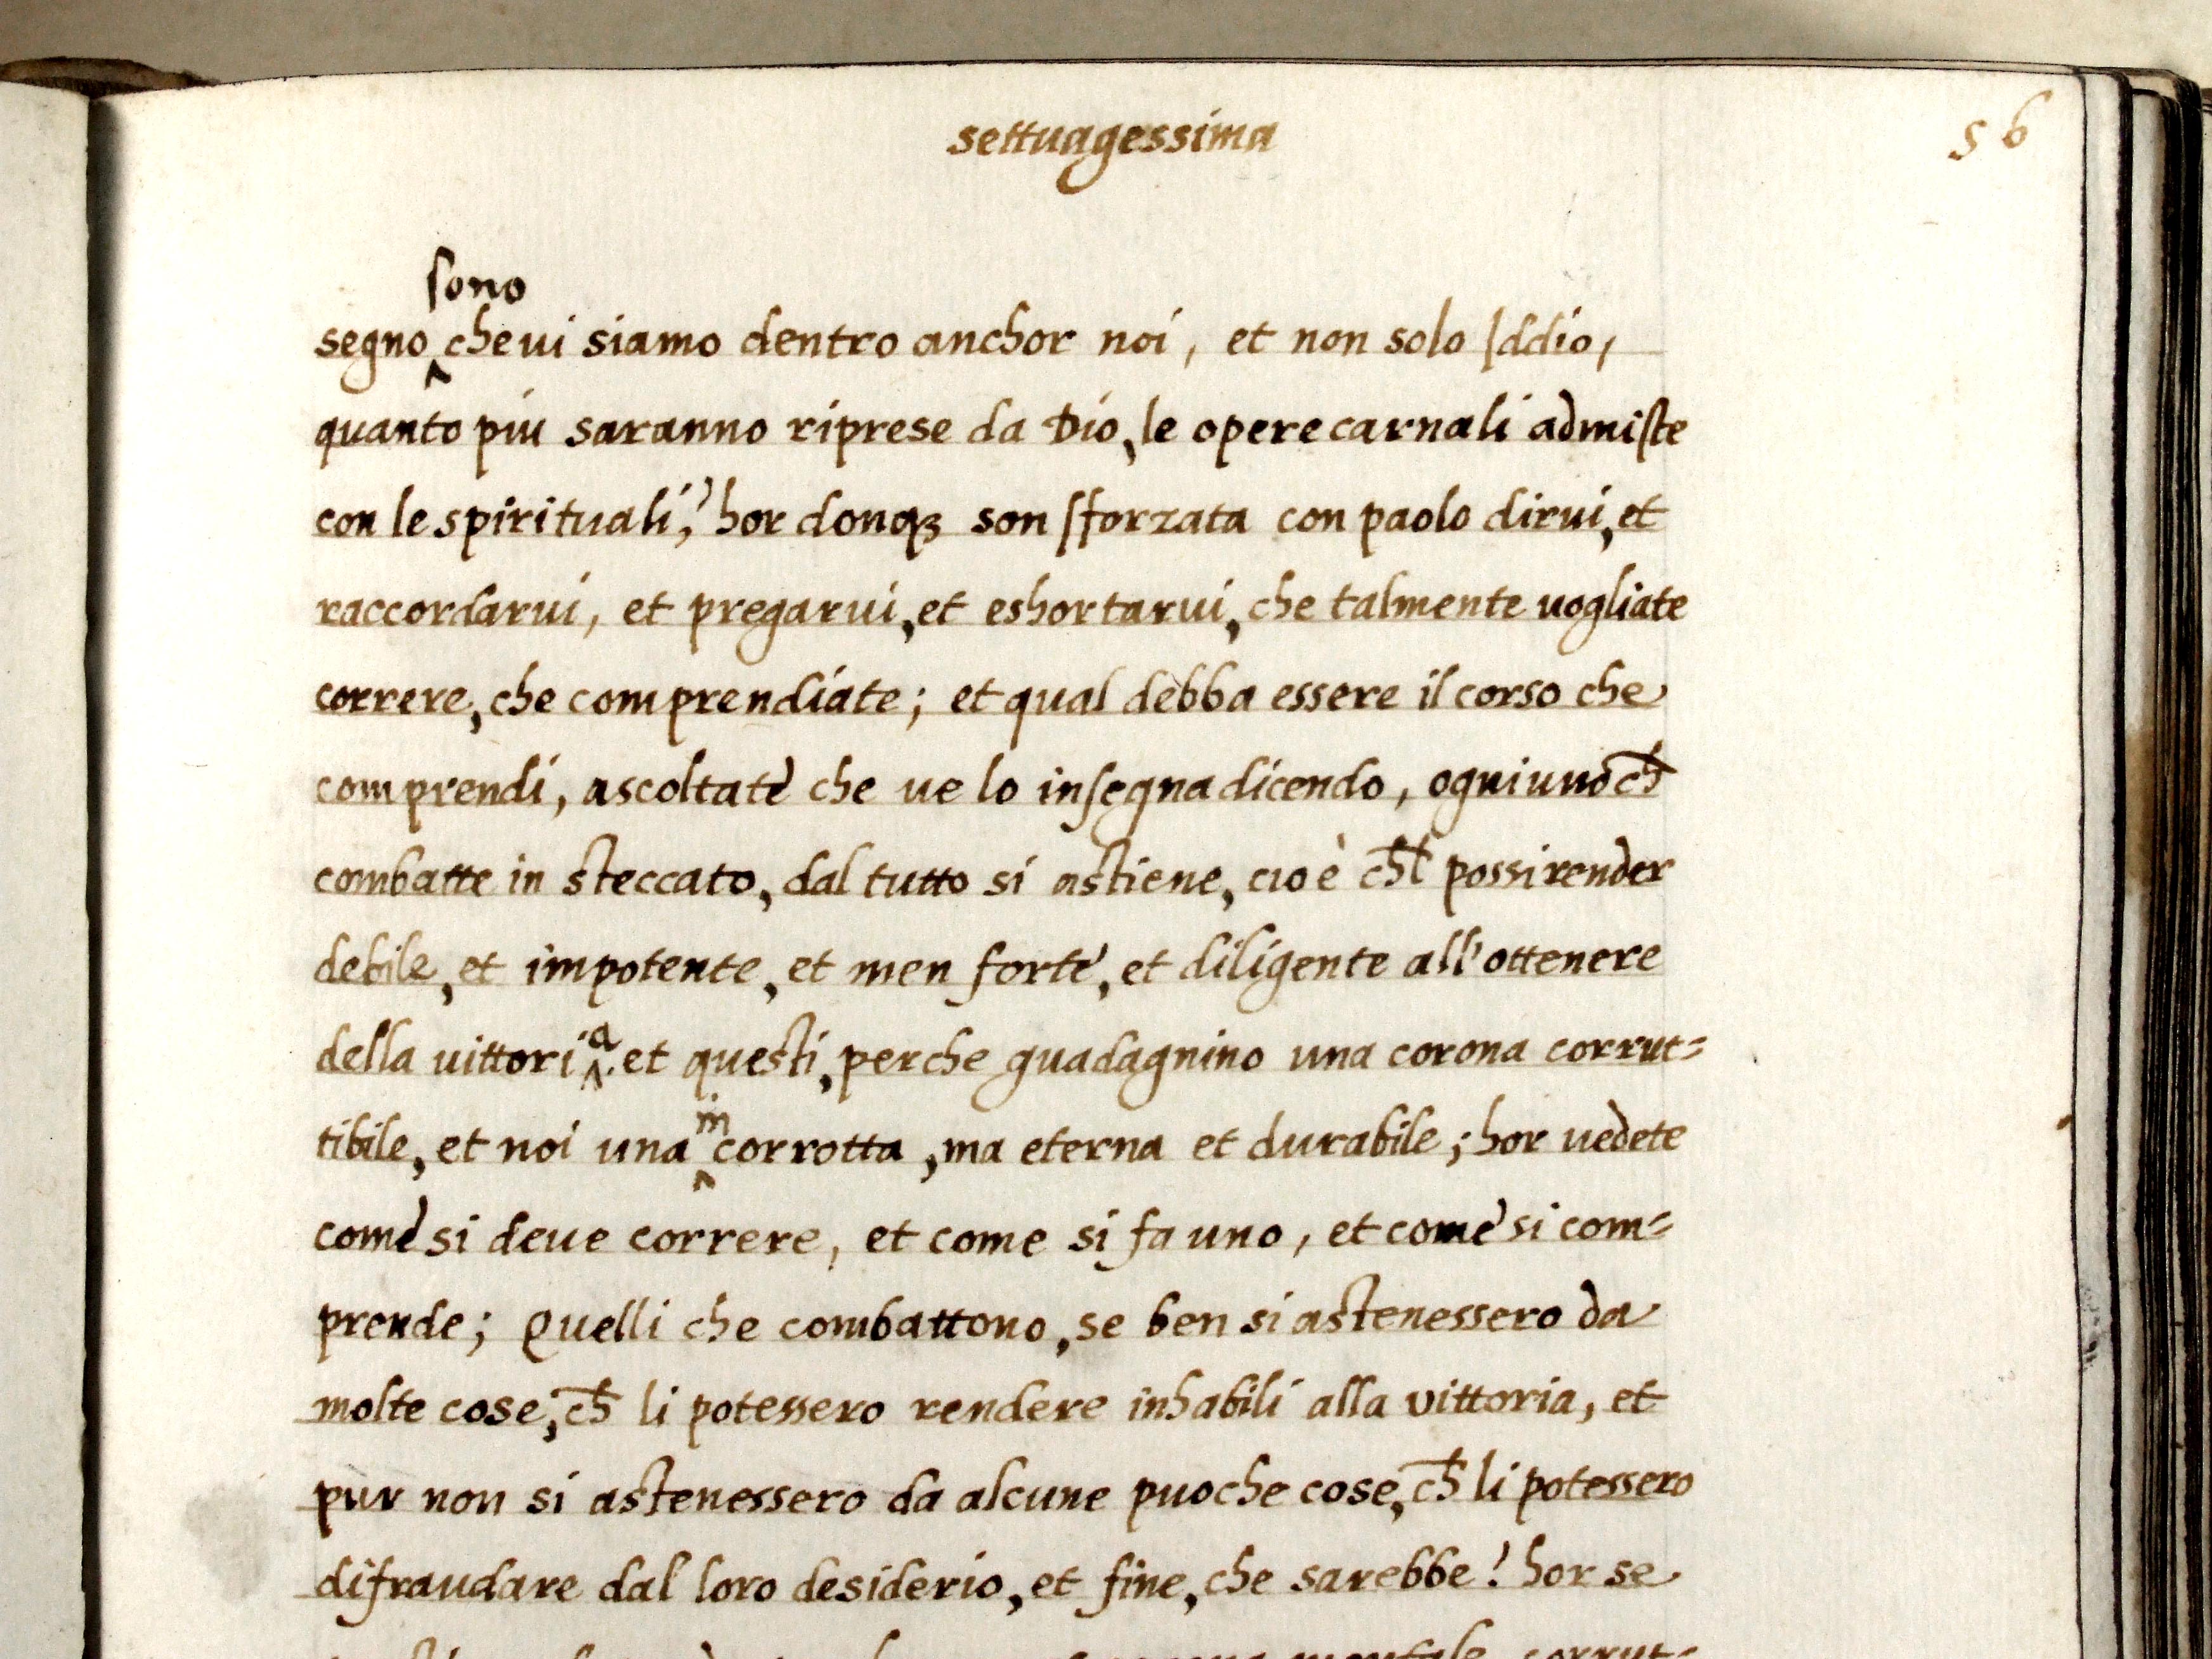 settuagessima
56
sono
segno ‸ che ui siamo dentro anchor noi, et non solo Iddio,
quanto piu saranno riprese da Dio, le opere carnali admiste
con le spirituali,? hor donqꝫ son sforzata con paolo dirui, et
raccordarui, et pregarui, et eshortarui, che talmente uogliate
correre, che comprendiate; et qual debba essere il corso che
comprendi, ascoltate che ue lo insegna dicendo, ogniuno ch̄
combatte in steccato, dal tutto si astiene, cioè ch̄l possi render
debile, et impotente, et men forte, et diligente all'ottenere
della vittori‸a. et questi, perche guadagnino una corona corrut=
tibile, et noi una ‸incorrotta, ma eterna et durabile; hor vedete
come si deue correre, et come si fa uno, et come si com=
prende; Quelli che combattono, se ben si astenessero da
molte cose, ch̄ li potessero rendere inhabili alla vittoria, et
pur non si astenessero da alcune puoche cose, ch̄ li potessero
difraudare dal loro desiderio, et fine, che sarebbe? hor se